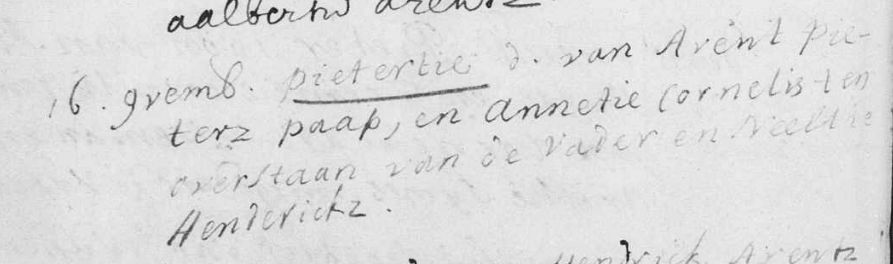 aalbertw arentz
16. 9vemb. pietertie d. van Arent Pie-
terz paap, en annetie Cornelis ten
overstaan van de Vader en Neeltie
Henderickz.
Hendrick Arentz